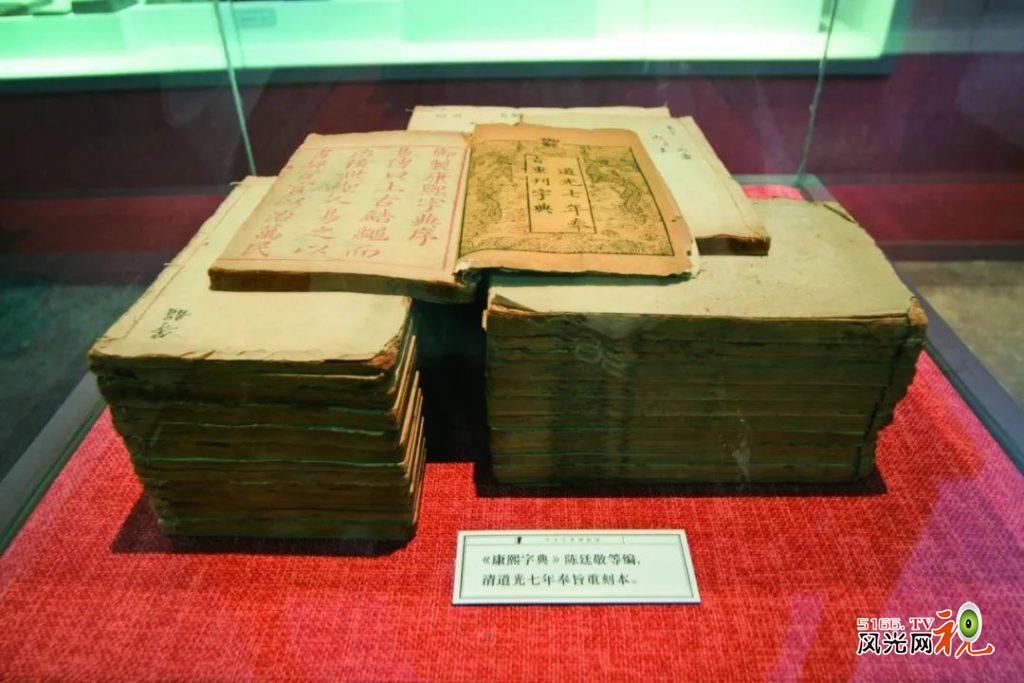 御製康熙字典序
易傳曰上古結繩而
治後世聖人易之以
書契百官以治萬民
御製
道光七年奉
旨重刊字典
《康熙字典》陈廷敬等编,
清道光七年奉旨重刻本。
5166.TV
风光网视